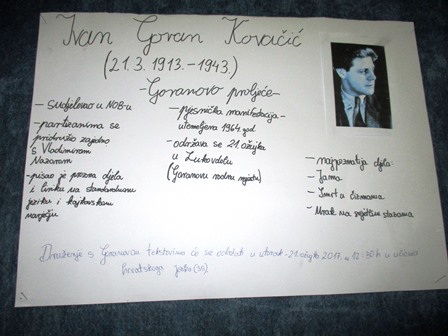 Ivan Goran Kovačić
(21.3. 1913.-1943.)
-Goranovo proljeće-
- sudjelovao u NOB-u
- partizanima se
pridružio zajedno
s Vladimirom
Nazorom
- pisao je prozna djela
i liriku na standardnom
jeziku i kajkavskom
narječju
- pjesnička manifestacija -
utemeljena 1964. god.
- održava se 21. ožujka
u Lukovdolu
(Goranovu rodnu mjestu)
- najpoznatija djela:
- Jama
- Smrt u čizmama
- Mrak na svijetlim stazama
Druženje s Goranovim tekstovima će se održati u utorak - 21. ožujka 2017. u 12:30h u učionici
hrvatskoga jezika